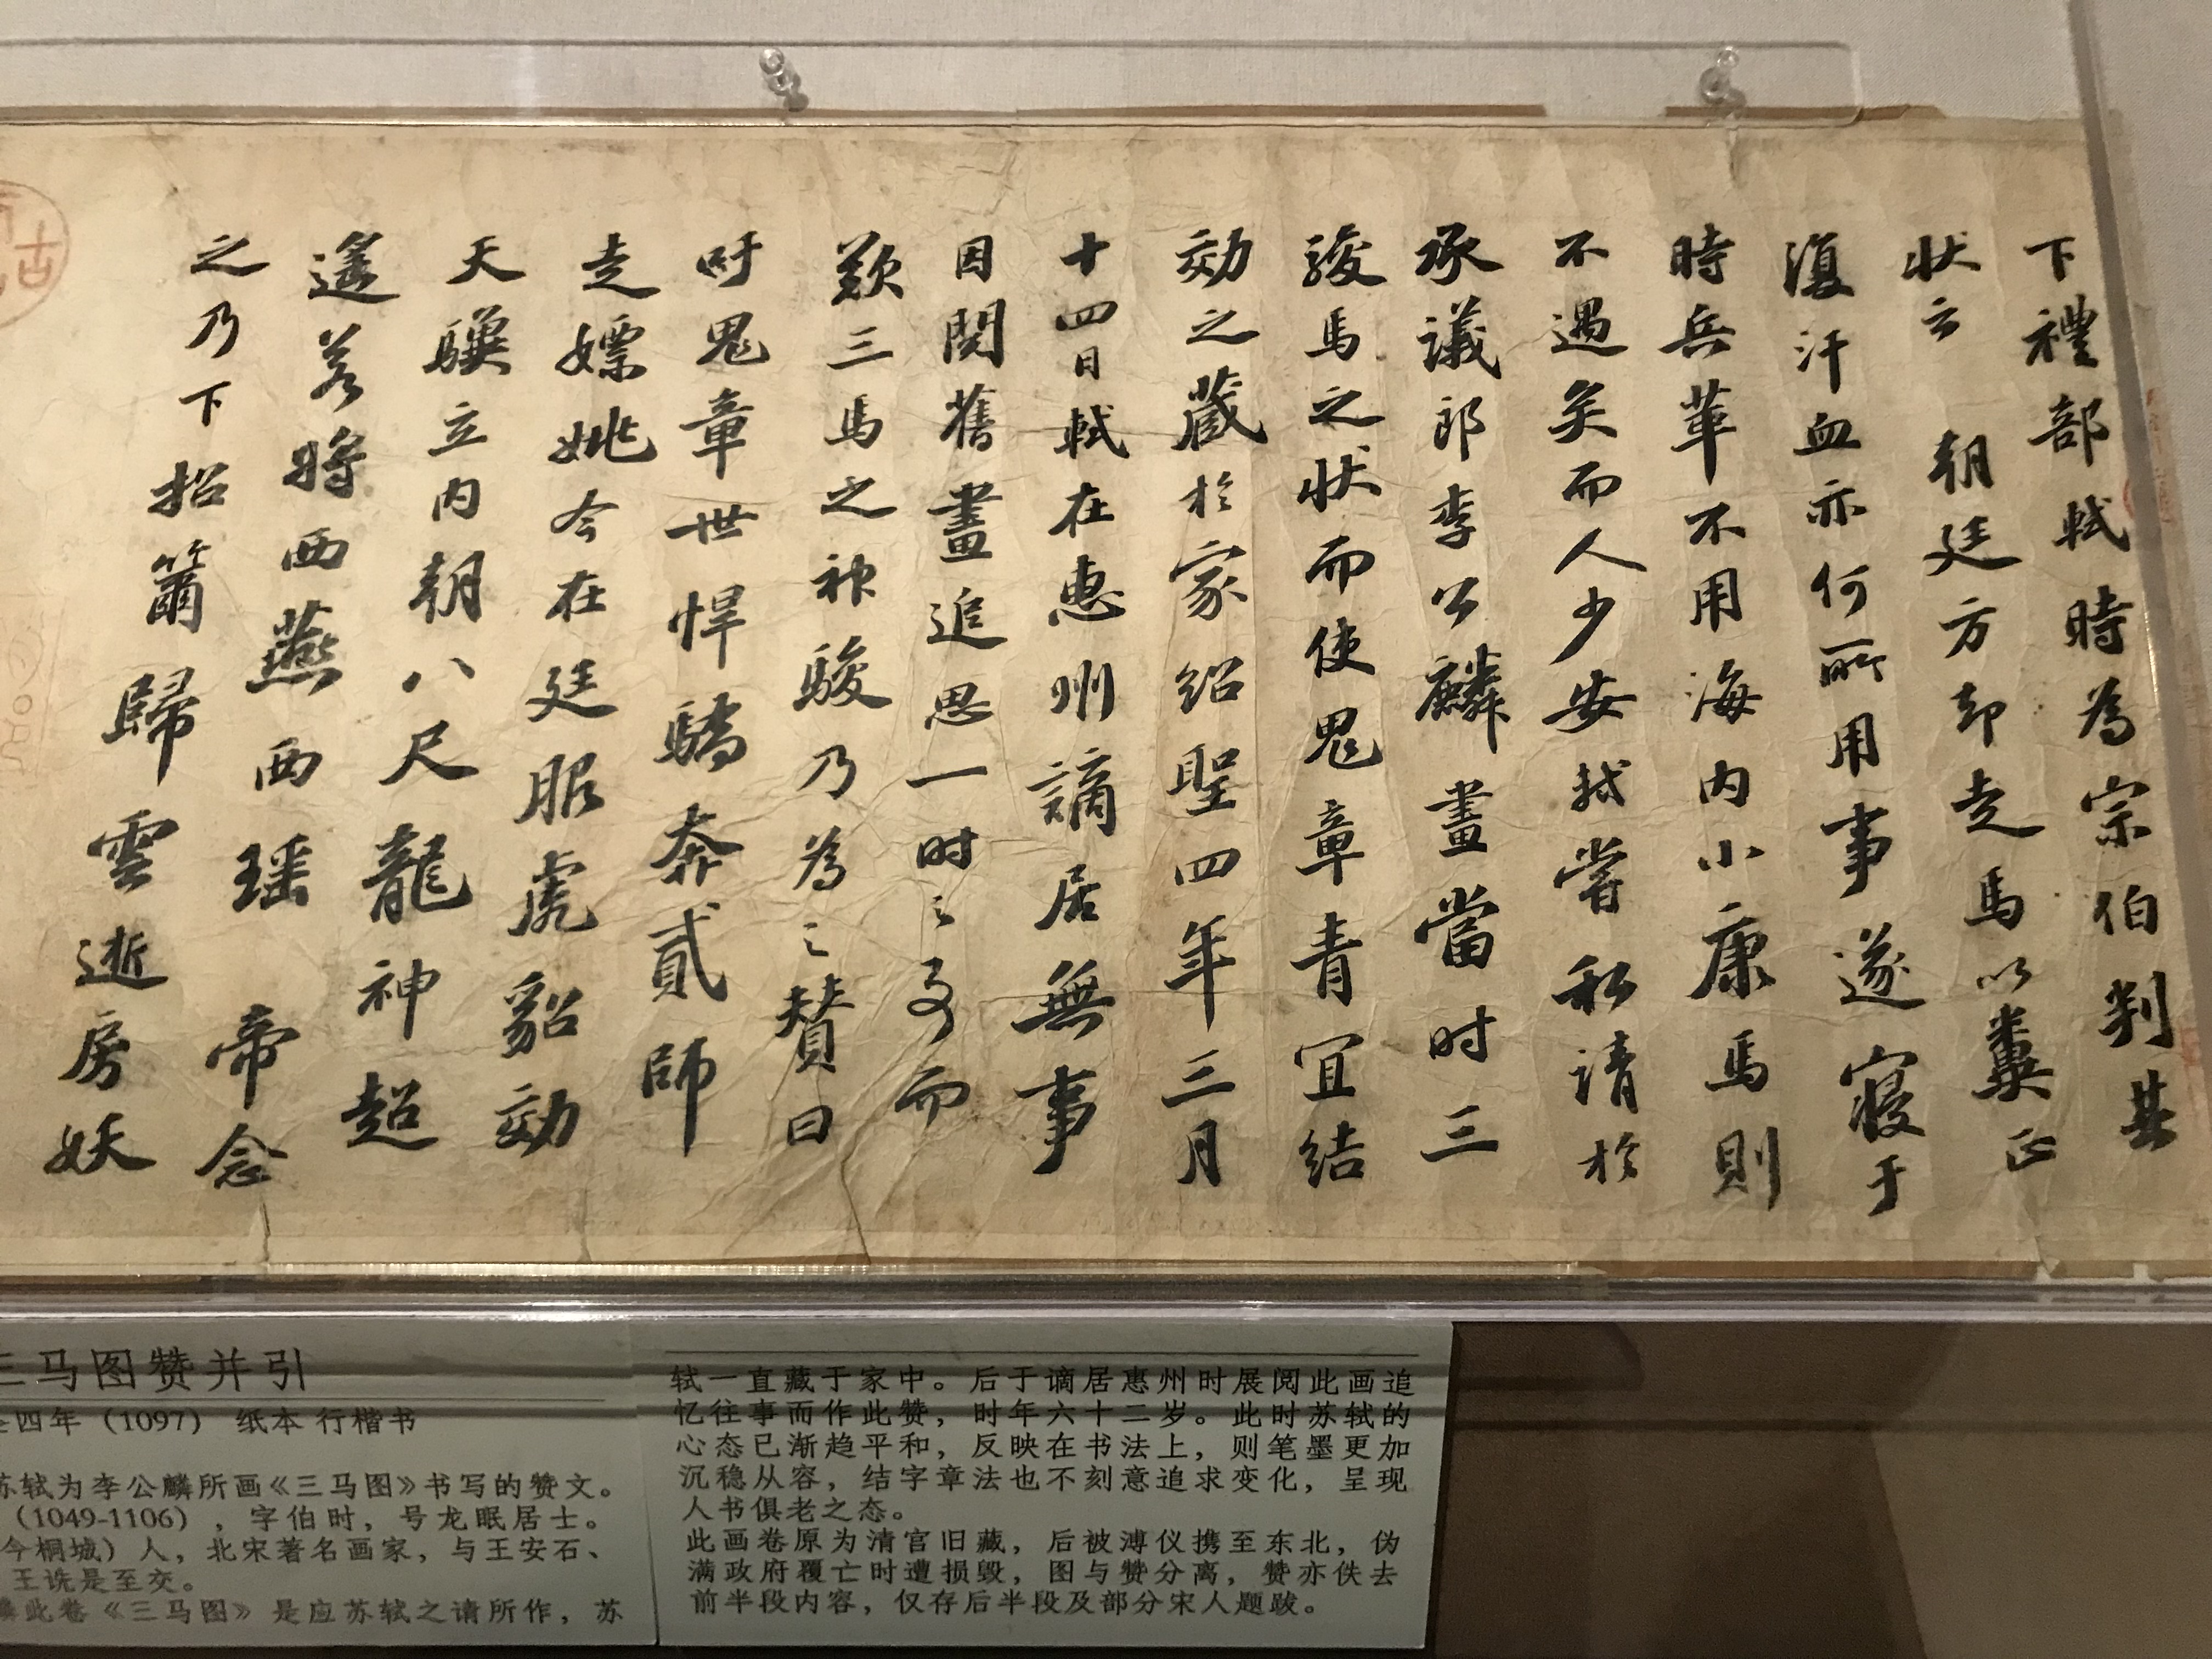 下禮部軾時為宗伯判其
状云 朝廷方却走馬以糞正
復汗血亦何所用事遂寝于
時兵革不用海内小康馬則
不遇矣而人少安軾嘗私請於
承議郎李公麟畫當时三
駿馬之状而使鬼章青宜结
効之蔵於家绍聖四年三月
十四日軾在惠州謫居無事
因閲舊畫追思一时之事而
歎三馬之神駿乃為之赞曰
吁鬼章世悍驕奔貳師
走嫖姚今在廷服虎貂効
天驥立内朝八尺龍神超
遥若將西燕西瑶 帝念
之乃下招籋歸雲逝房妖
古
三马图赞并引
四年（1097） 纸本 行楷书
苏轼为李公麟所画《三马图》书写的赞文。
（1049-1106），字伯时，号龙眠居士。
今桐城）人，北宋著名画家，与王安石、
王诜是至交。
此卷《三马图》是应苏轼之请所作，苏
轼一直藏于家中。后于谪居惠州时展阅此画追
忆往事而作此赞，时年六十二岁。此时苏轼的
心态已渐趋平和，反映在书法上，则笔墨更加
沉稳从容，结字章法也不刻意追求变化，呈现
人书俱老之态。
此画卷原为清宫旧藏，后被溥仪携至东北，伪
满政府覆亡时遭损毁，图与赞分离，赞亦佚去
前半段内容，仅存后半段及部分宋人题跋。